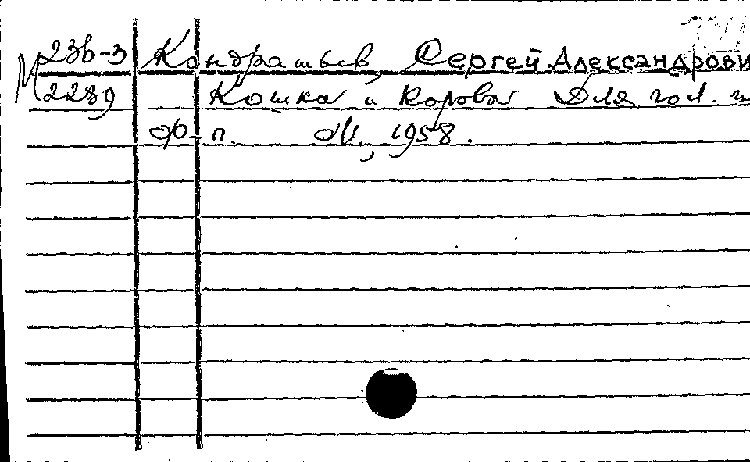 М 23б-3 Кондратьев, Сергей Александрови
2289 Кошка и корова Для гол. и
ф-п. М., 1958.